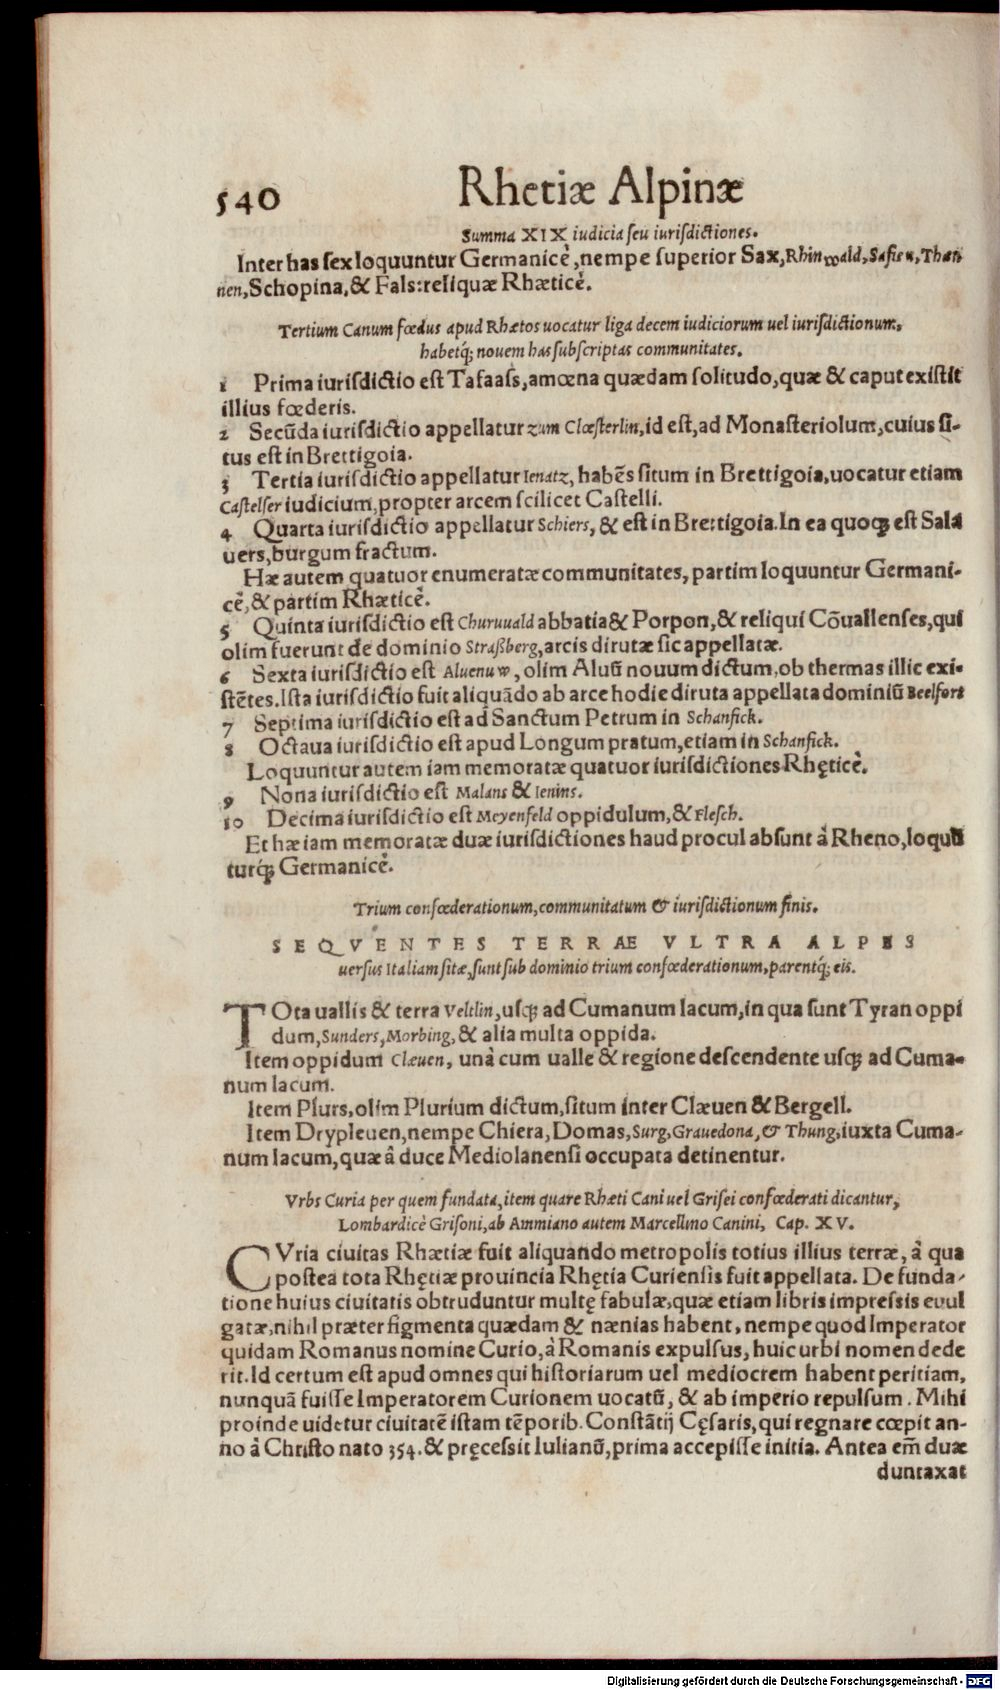 540
Rhetiæ Alpinæ
Summa XIX iudicia ſeu iuriſdictiones.
Inter has ſex loquuntur Germanicè, nempe ſuperior Sax, Rhinwald, Safien, Than
nen, Schopina, & Fals: reliquæ Rhæticè.
Tertium Canum fœdus apud Rhætos uocatur liga decem iudiciorum uel iuriſdictionum,
habetq́; nouem has ſubſcriptas communitates.
1 Prima iuriſdictio eſt Tafaaſs, amœna quædam ſolitudo, quæ & caput exiſtit
illius fœderis.
2 Secũda iuriſdictio appellatur zum Clœſterlin, id eſt, ad Monaſteriolum, cuius ſi-
tus eſt in Brettigoia.
3 Tertia iuriſdictio appellatur Ienatz, habẽs ſitum in Brettigoia, uocatur etiam
Caſtelſer iudicium, propter arcem ſcilicet Caſtelli.
4 Quarta iuriſdictio appellatur Schiers, & eſt in Brettigoia. In ea quoqꝫ eſt Salä
uers, burgum fractum.
Hæ autem quatuor enumeratæ communitates, partim loquuntur Germani-
cè, & partim Rhæticè.
5 Quinta iuriſdictio eſt Churuuald abbatia & Porpon, & reliqui Cõuallenſes, qui
olim fuerunt de dominio Straßberg, arcis dirutæ ſic appellatæ.
6 Sexta iuriſdictio eſt Aluenuw, olim Aluũ nouum dictum, ob thermas illic exi-
ſtẽtes. Iſta iuriſdictio fuit aliquãdo ab arce hodie diruta appellata dominiũ Beelfort
7 Septima iuriſdictio eſt ad Sanctum Petrum in Schanfick.
8 Octaua iuriſdictio eſt apud Longum pratum, etiam in Schanfick.
Loquuntur autem iam memoratæ quatuor iuriſdictiones Rhęticè.
9 Nona iuriſdictio eſt Malans & Ienins.
10 Decima iuriſdictio eſt Meyenfeld oppidulum, & Fleſch.
Et hæ iam memoratæ duæ iuriſdictiones haud procul abſunt à Rheno, loquũ
turq́; Germanicè.
Trium confœderationum, communitatum & iuriſdictionum finis.
SEQVENTES TERRÆ VLTRA ALPES
uerſus Italiam ſitæ, ſunt ſub dominio trium confœderationum, parentq́; eis.
TOta uallis & terra Veltlin, uſqꝫ ad Cumanum lacum, in qua ſunt Tyran oppi
dum, Sunders, Morbing, & alia multa oppida.
Item oppidum Clæuen, unà cum ualle & regione deſcendente uſqꝫ ad Cuma-
num lacum.
Item Plurs, olim Plurium dictum, ſitum inter Clæuen & Bergell.
Item Drypleuen, nempe Chiera, Domas, Surg, Grauedona, & Thung, iuxta Cuma-
num lacum, quæ â duce Mediolanenſi occupata detinentur.
Vrbs Curia per quem fundata, item quare Rhæti Cani uel Griſei confœderati dicantur,
Lombardicè Griſoni, ab Ammiano autem Marcellino Canini, Cap. XV.
CVria ciuitas Rhætiæ fuit aliquando metropolis totius illius terræ, à qua
poſtea tota Rhętiæ prouincia Rhętia Curienſis fuit appellata. De funda-
tione huius ciuitatis obtruduntur multę fabulæ, quæ etiam libris impreſsis euul
gatæ, nihil præter figmenta quædam & nænias habent, nempe quod Imperator
quidam Romanus nomine Curio, à Romanis expulſus, huic urbi nomen dede
rit. Id certum eſt apud omnes qui hiſtoriarum uel mediocrem habent peritiam,
nunquã fuiſſe Imperatorem Curionem uocatũ, & ab imperio repulſum. Mihi
proinde uidetur ciuitatẽ iſtam tẽporib. Conſtãtij Cęſaris, qui regnare cœpit an-
no à Chriſto nato 354. & pręceſsit Iulianũ, prima accepiſſe initia. Antea em̃ duæ
duntaxat
Digitalisierung gefördert durch die Deutsche Forschungsgemeinschaft - DFG